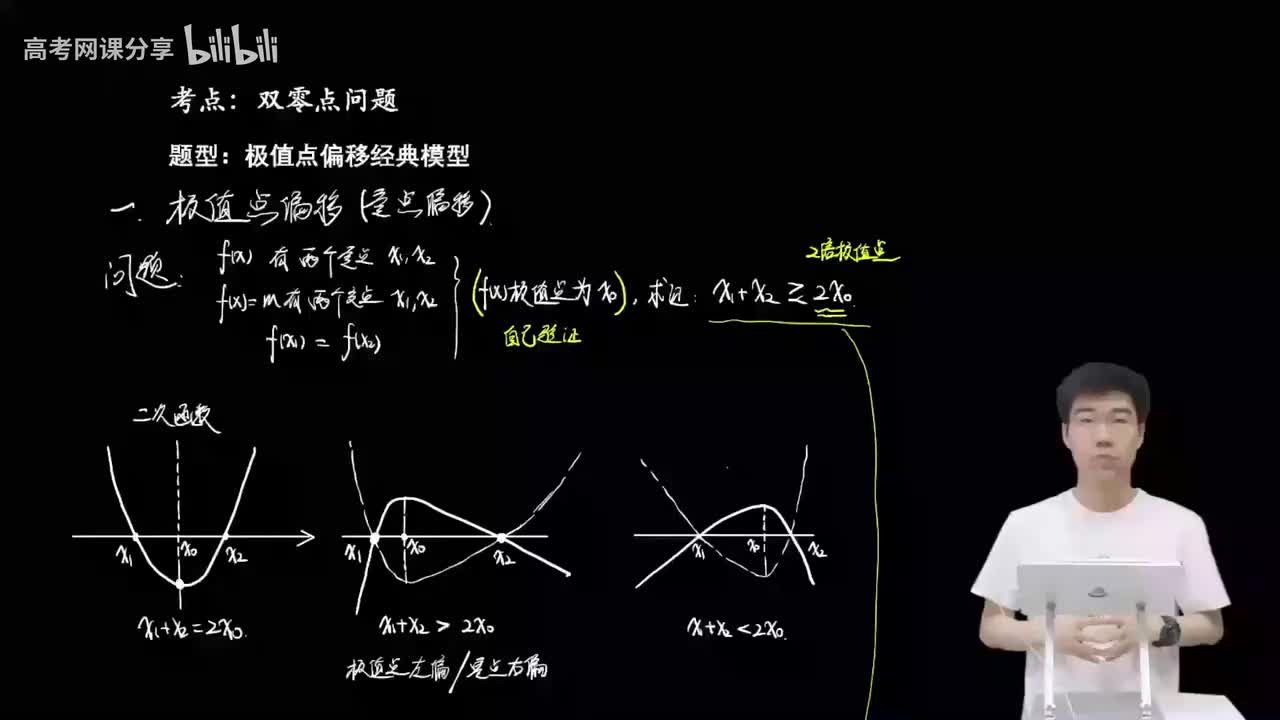 高考网课分享 bilibili
考点：双零点问题
题型：极值点偏移经典模型
一. 极值点偏移（零点偏移）.
问题：
f(x) 有两个零点 x₁, x₂
f(x)=m 有两个零点 x₁, x₂
f(x₁) = f(x₂)
(f(x)极值点为 x₀), 求证: x₁+x₂ ≥ 2x₀.
2倍极值点
自己验证
二次函数
x₁ x₀ x₂
x₁ x₀ x₂
x₁ x₀ x₂
x₁+x₂ = 2x₀.
x₁+x₂ > 2x₀
x₁+x₂ < 2x₀.
极值点左偏/零点右偏